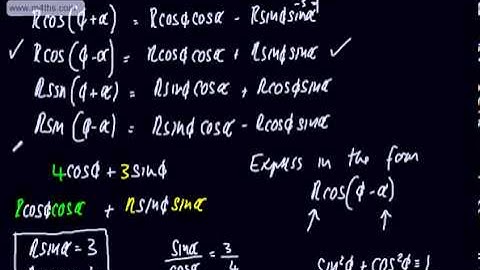 www.m4ths.com
Rcos(ϕ+α) = Rcosϕcosα - Rsinϕsinα
✓ Rcos(ϕ-α) = Rcosϕcosα + Rsinϕsinα ✓
Rsin(ϕ+α) = Rsinϕcosα + Rcosϕsinα
Rsin(ϕ-α) = Rsinϕcosα - Rcosϕsinα
4cosϕ + 3sinϕ
Express in the form
Rcos(ϕ-α)
Rcosϕcosα + Rsinϕsinα
Rsinα = 3
sinα/cosα = 3/4
sin²ϕ + cos²ϕ ≡ 1